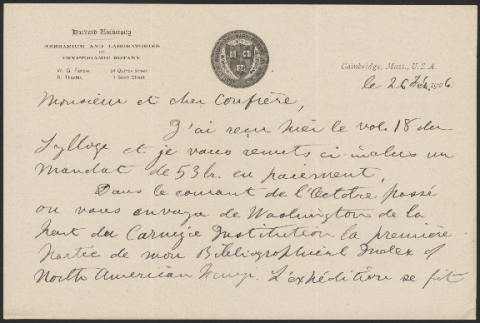 Harvard University
HERBARIUM AND LABORATORIES
OF
CRYPTOGAMIC BOTANY
W. G. Farlow, 24 Quincy Street
R. Thaxter, 7 Scott Street
Cambridge, Mass., U.S.A.
le 26 Fév 1906
Monsieur et cher Confrère,
J'ai reçu hier le vol. 18 du
Sylloge et je vous remets ci-inclus un
mandat de 53 lr. en paiement.
Dans le courant de l'Octobre passé
on vous envoya de Washington de la
part du Carnegie Institution la première
partie de mon Bibliographical Index of
North American Fungi. L'expédition se fit